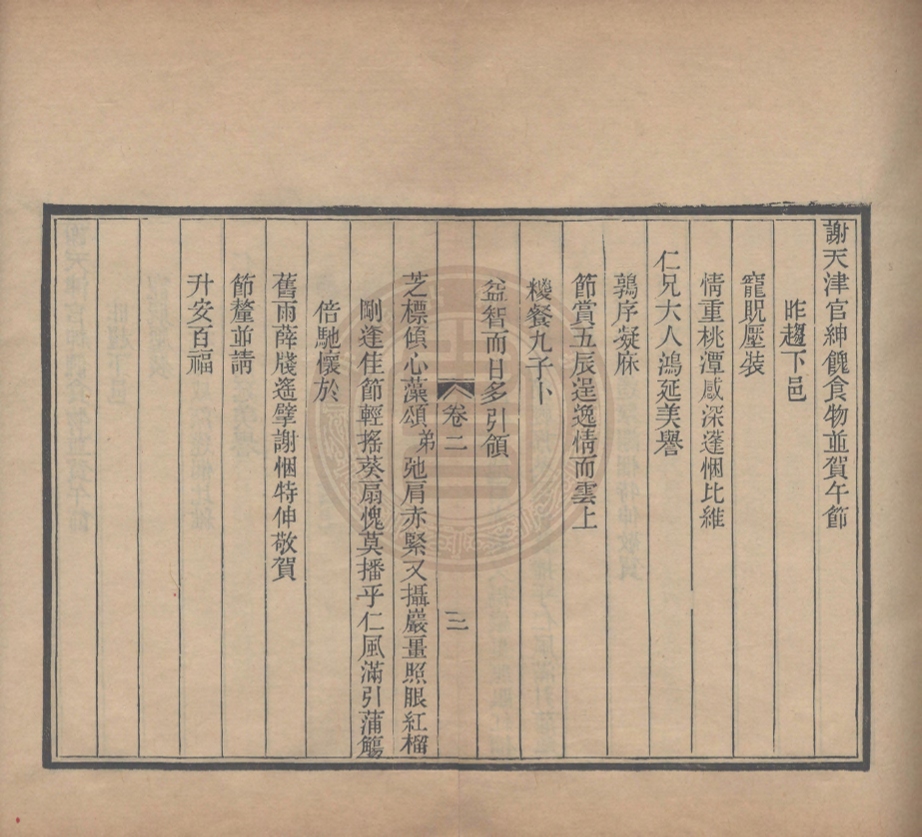 謝天津官紳餽食物並賀午節
昨趨下邑
寵貺壓裝
情重桃潭感深蓬悃比維
仁兄大人鴻延美譽
鶉序凝庥
節賞五辰逞逸情而雲上
糉餐九子卜
益智而日多引領
卷二
三
芝標傾心藻頌弟弛肩赤緊又攝巖畺照眼紅榴
剛逢佳節輕搖葵扇愧莫播乎仁風滿引蒲觴
倍馳懷於
舊雨薛牋遙擘謝悃特伸敬賀
節釐並請
升安百福